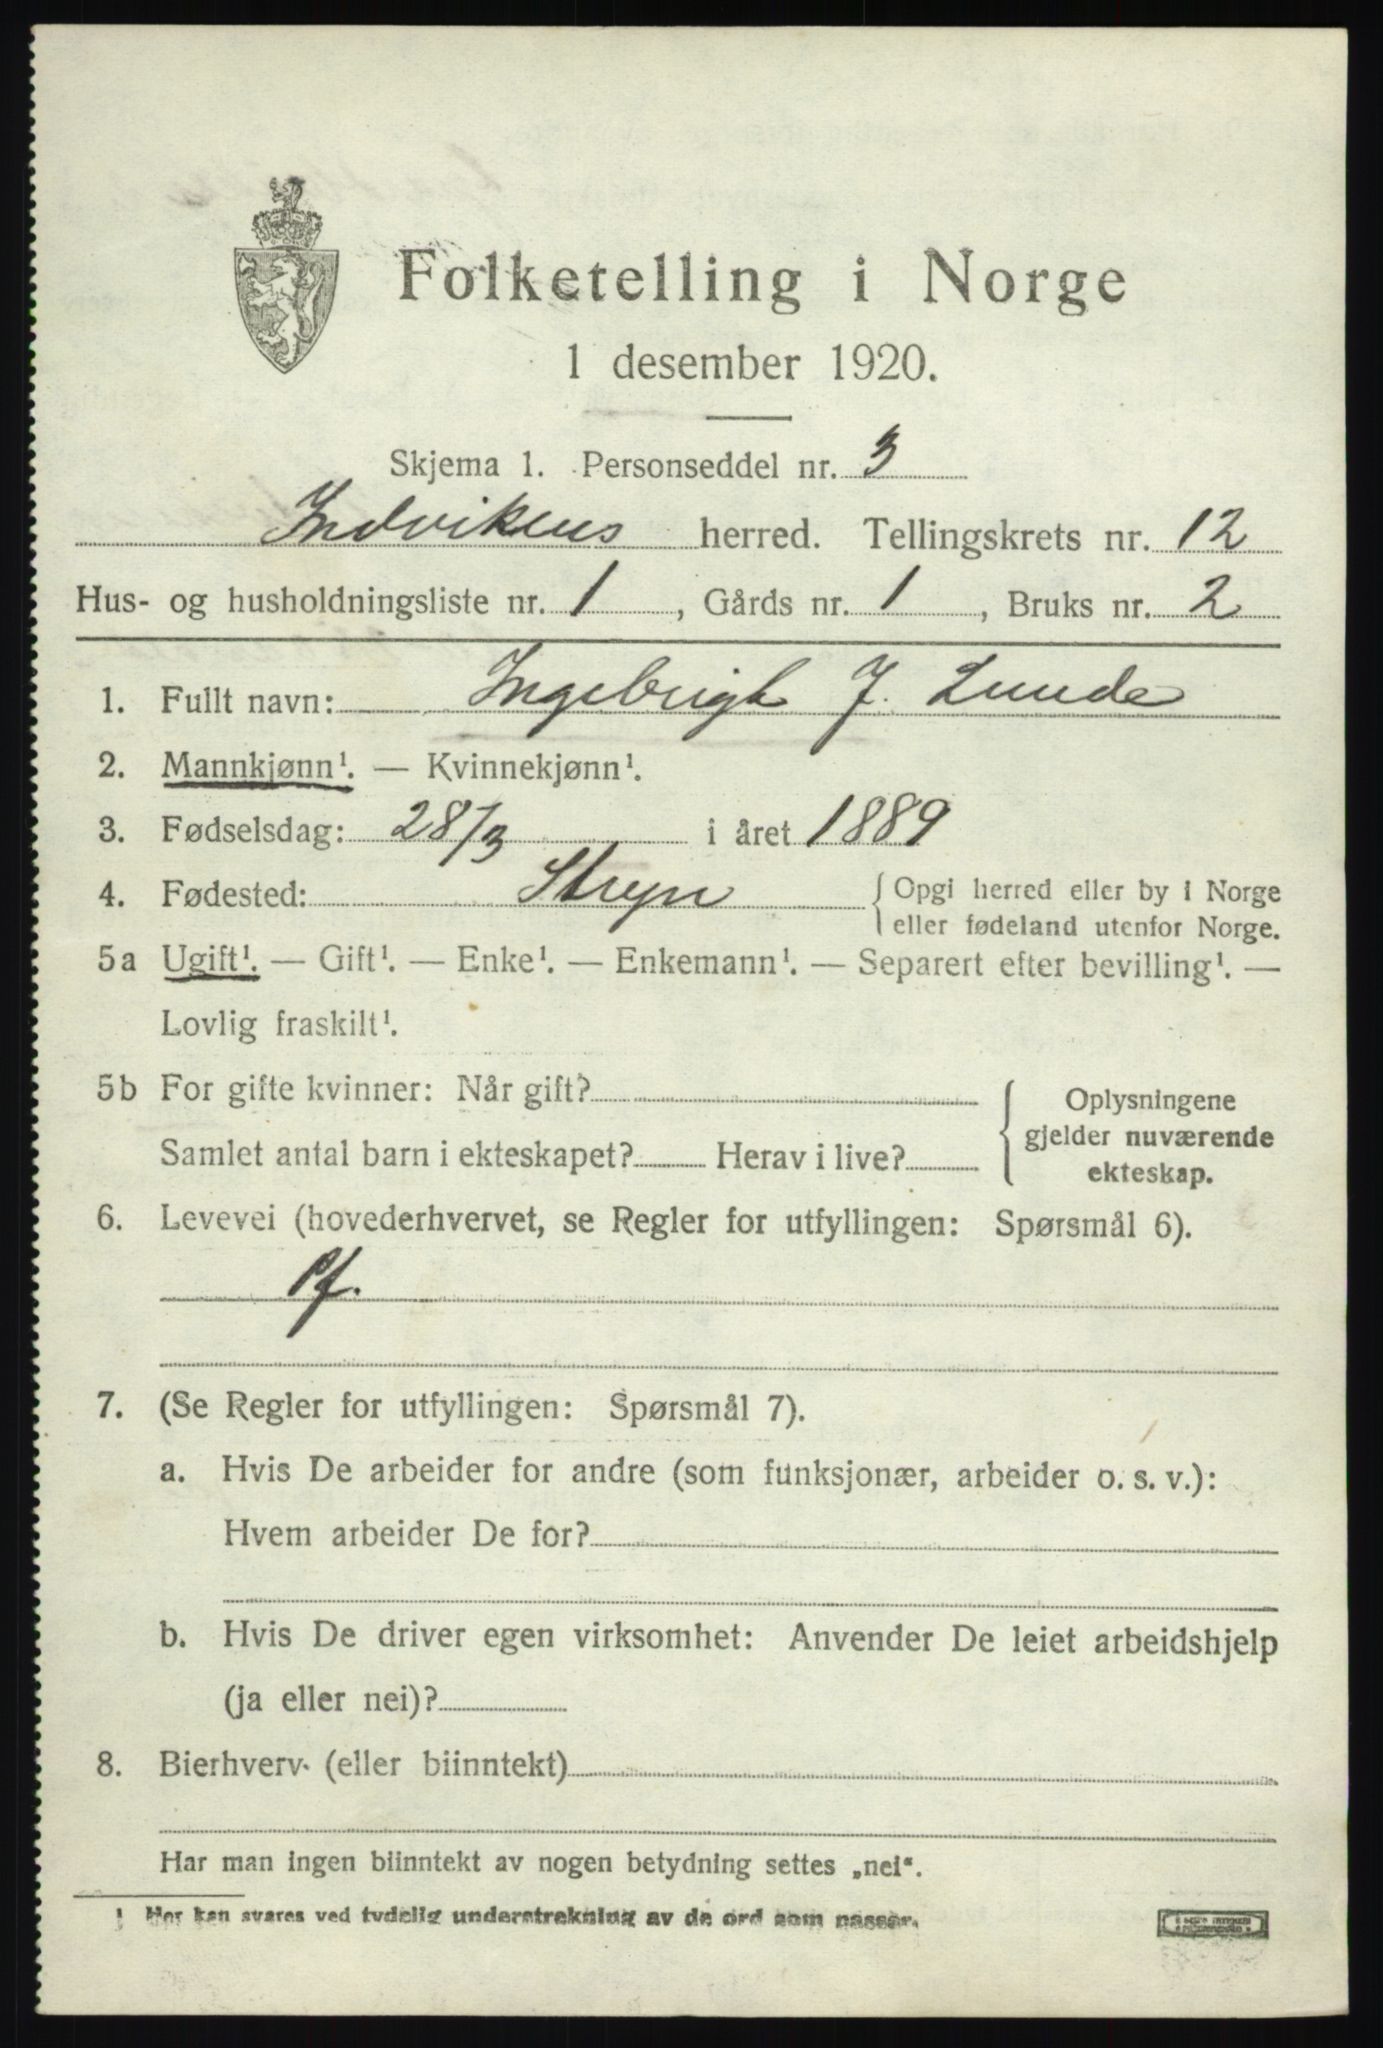 Folketelling i Norge
1 desember 1920.
Skjema 1. Personseddel nr. 3
Indvikens herred. Tellingskrets nr. 12
Hus- og husholdningsliste nr. 1, Gårds nr. 1, Bruks nr. 2
1. Fullt navn: Ingebrigt J. Lunde
2. Mannkjønn¹. — Kvinnekjønn¹.
3. Fødselsdag: 28/3 i året 1889
4. Fødested: Stryn { Opgi herred eller by i Norge
eller fødeland utenfor Norge.
5a Ugift¹. — Gift¹. — Enke¹. — Enkemann¹. — Separert efter bevilling¹. —
Lovlig fraskilt¹.
5b For gifte kvinner: Når gift? { Oplysningene
gjelder nuværende
Samlet antal barn i ekteskapet? Herav i live? ekteskap.
6. Levevei (hovederhvervet, se Regler for utfyllingen: Spørsmål 6).
Pf.
7. (Se Regler for utfyllingen: Spørsmål 7).
a. Hvis De arbeider for andre (som funksjonær, arbeider o. s. v.):
Hvem arbeider De for?
b. Hvis De driver egen virksomhet: Anvender De leiet arbeidshjelp
(ja eller nei)?
8. Bierhverv (eller biinntekt)
Har man ingen biinntekt av nogen betydning settes „nei“.
¹ Her kan svares ved tydelig understrekning av de ord som passer.